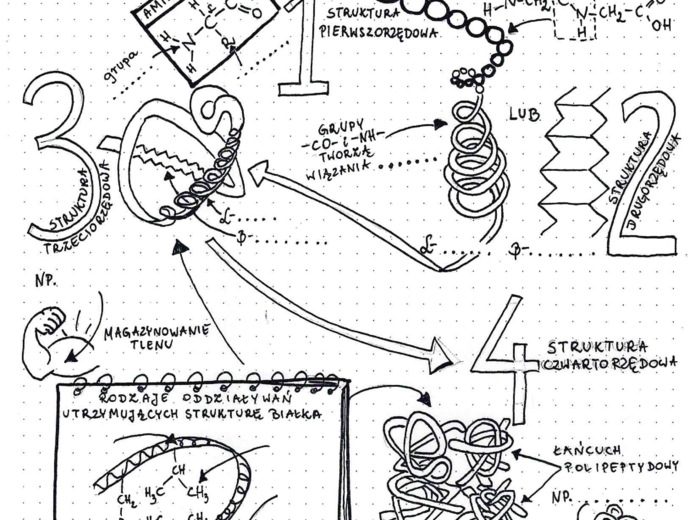 AMIN
H
H
N
C
C
O
R
grupa ........
..........
1
STRUKTURA
PIERWSZORZĘDOWA
H-N-CH₂
C
N
H
CH₂-C
O
OH
3
STRUKTURA
TRZECIORZĘDOWA
GRUPY
-CO- i -NH-
TWORZĄ
WIĄZANIA ........
LUB
2
STRUKTURA
DRUGORZĘDOWA
L- ........
β- ........
L- ........
β- ........
NP.
MAGAZYNOWANIE
TLENU
4
STRUKTURA
CZWARTORZĘDOWA
RODZAJE ODDZIAŁYWAŃ
UTRZYMUJĄCYCH STRUKTURĘ BIAŁKA
CH
H₃C
CH₃
CH₂
H₃C
CH₃
ŁAŃCUCH
POLIPEPTYDOWY
NP. ........